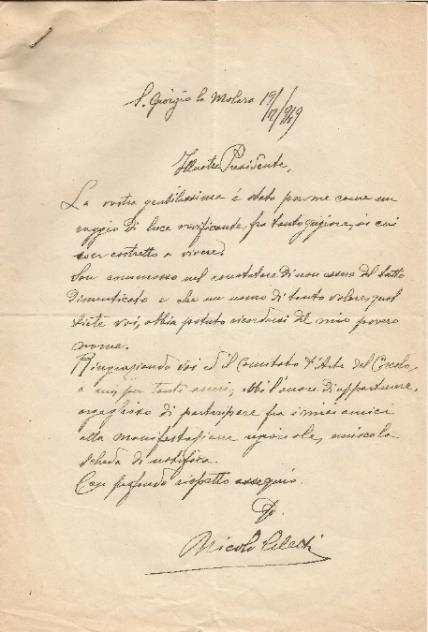 S. Giorgio la Molara 19/12/929
Illustre Presidente,
La vostra gentilissima è stata per me come un
raggio di luce vivificante, fra tanto grigiore, in cui
son costretto a vivere.
Son commosso nel constatare di non essere del tutto
dimenticato e che un uomo di tanto valore, qual
siete voi, abbia potuto ricordarsi del mio povero
nome.
Ringraziando Voi ed il Comitato d'Arte del Circolo,
a cui per tanti anni, ebbi l'onore di appartenere,
orgoglioso di partecipare fra i miei amici
alla manifestazione agricola,
scheda di notifica.
Con profondo rispetto ossequio
Nicola